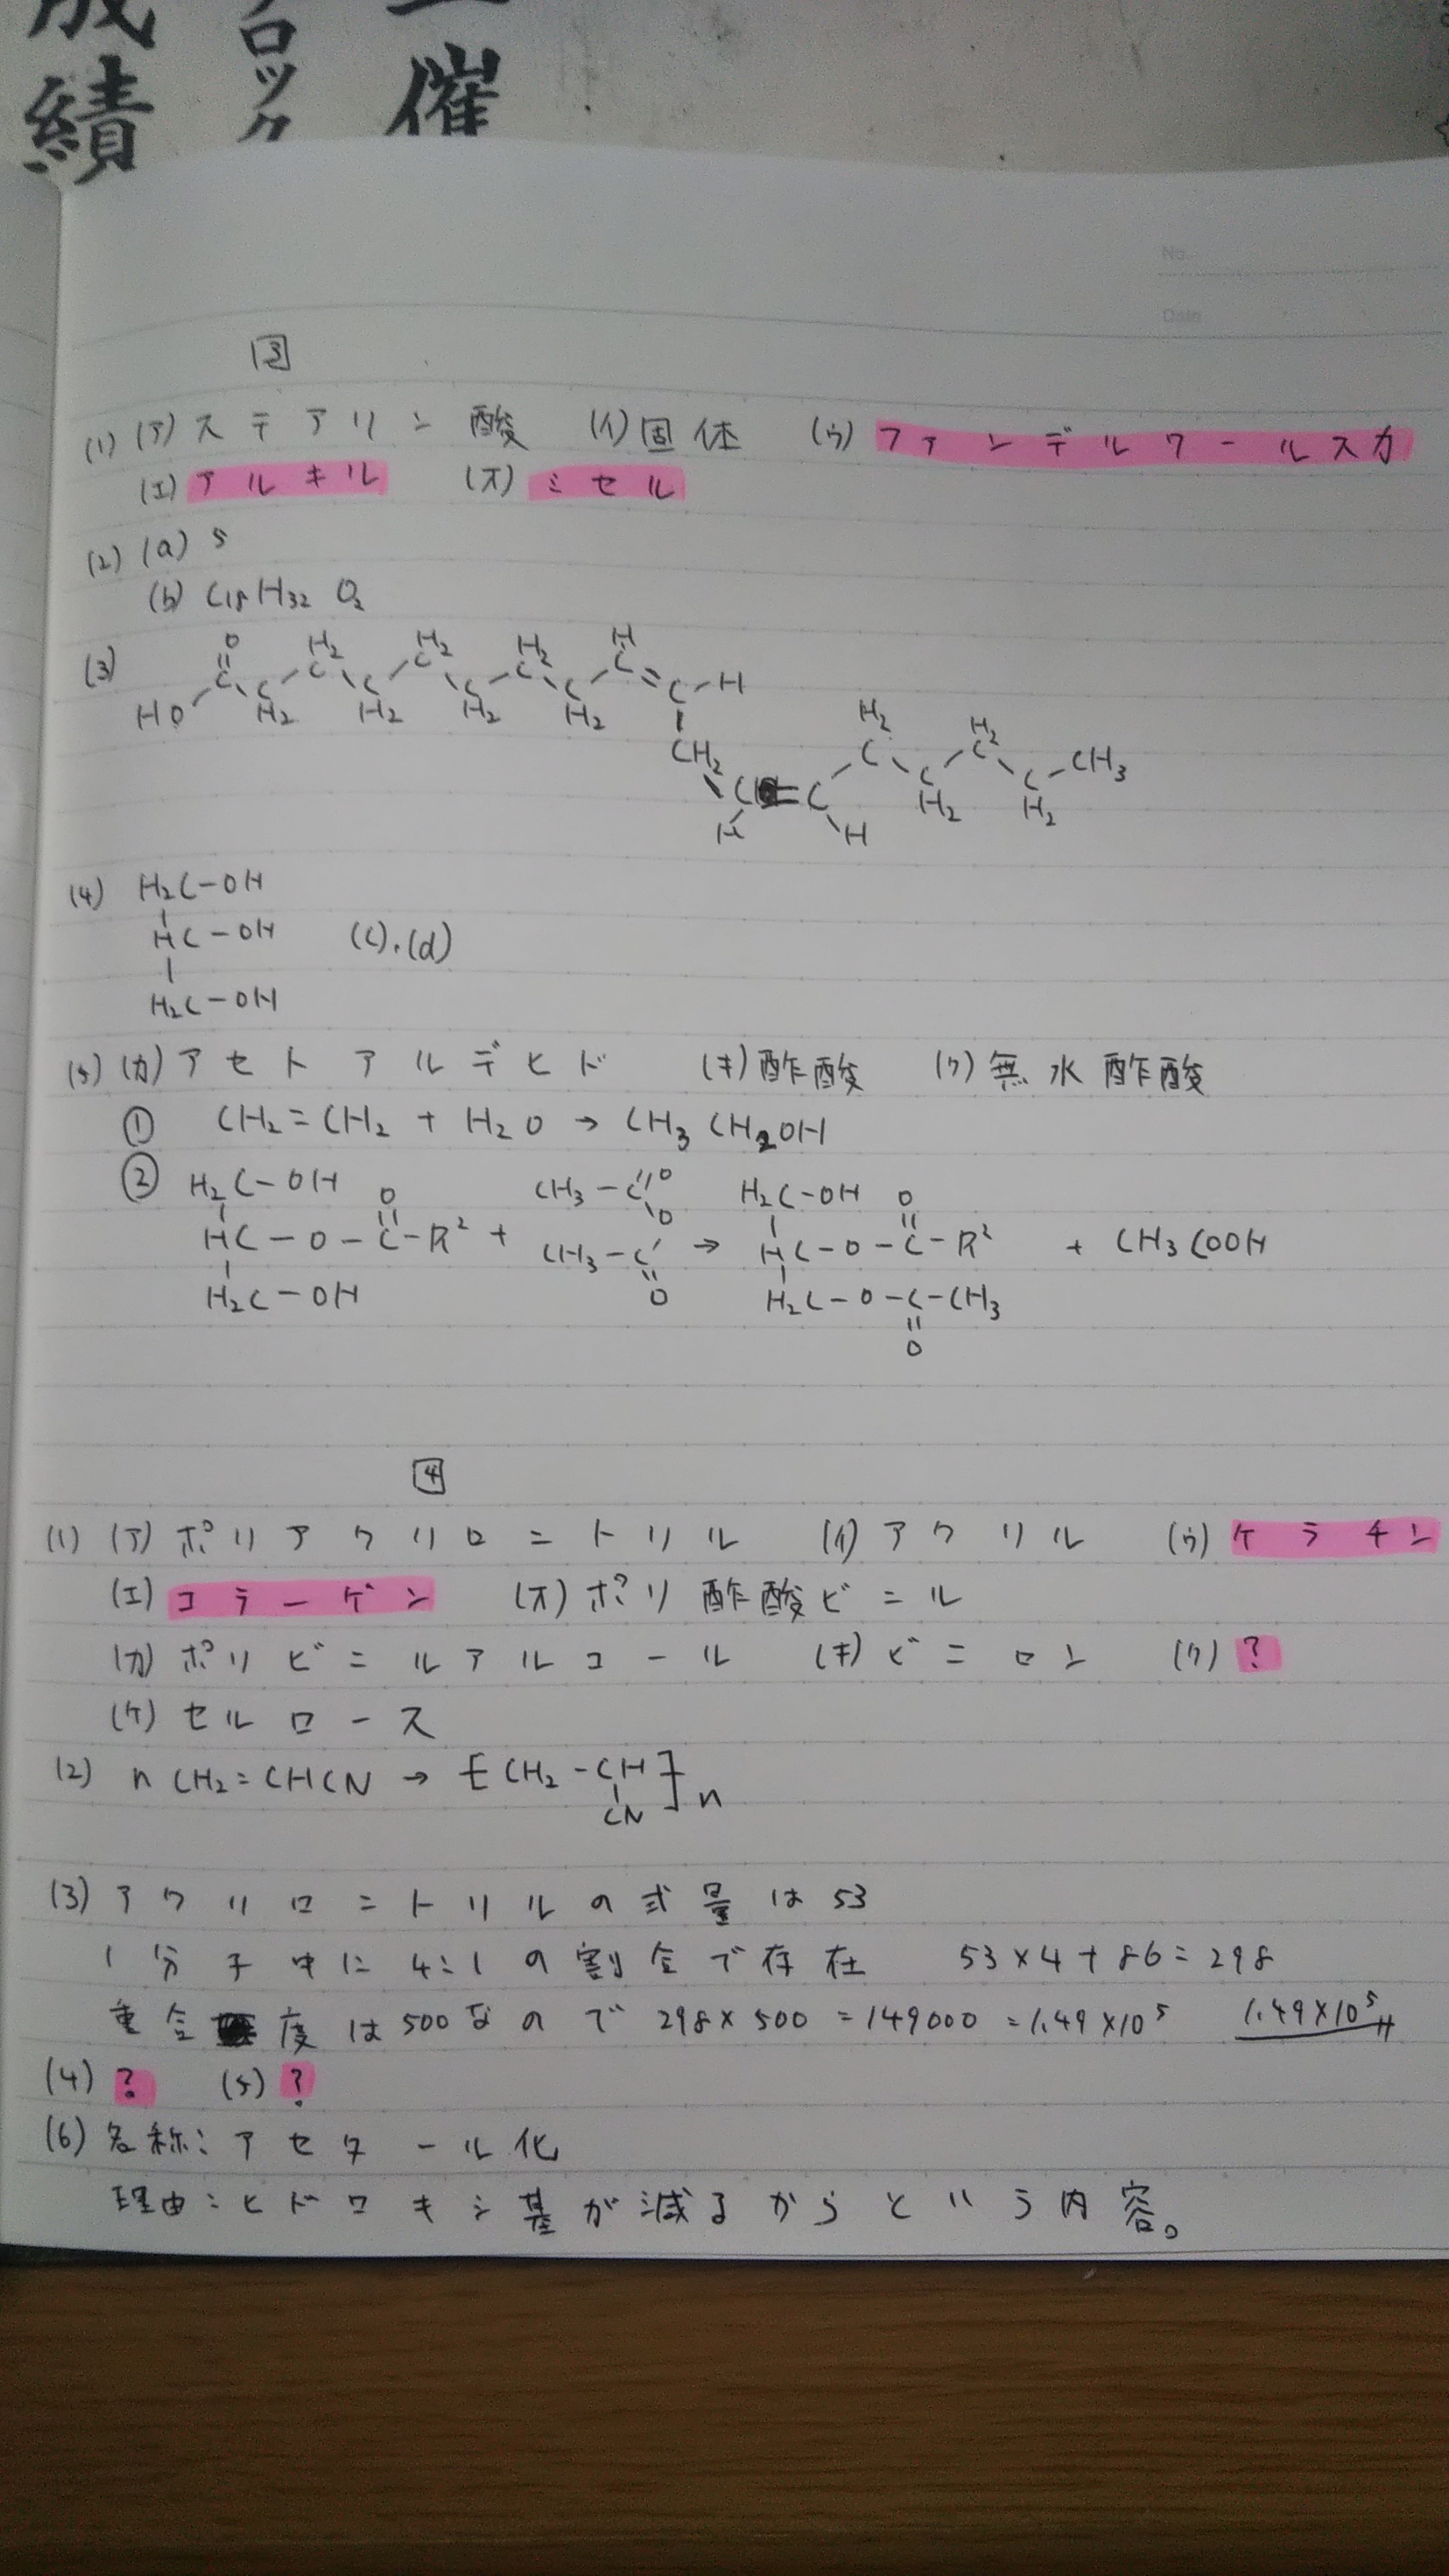 成績
ブロック
主催
No.
Date
3
(1) (ア) ステアリン酸 (イ) 固体 (ウ) ファンデルワールス力
(エ) アルキル (オ) ミセル
(2) (a) 5
(b) C18H32O2
(3)
O H2 H2 H2 H
HO C C C C C C C C C = C - H
H2 H2 H2 H2
CH2 H2 H2
C = C C C C C CH3
H H H2 H2
(4) H2C-OH
HC-OH (c).(d)
H2C-OH
(5) (カ) アセトアルデヒド (キ) 酢酸 (ク) 無水酢酸
① CH2=CH2 + H2O → CH3CH2OH
② H2C-OH O CH3-C=O H2C-OH O
HC-O-C-R² + O → HC-O-C-R² + CH3COOH
H2C-OH CH3-C=O H2C-O-C-CH3
O
4
(1) (ア) ポリアクリロニトリル (イ) アクリル (ウ) ケラチン
(エ) コラーゲン (オ) ポリ酢酸ビニル
(カ) ポリビニルアルコール (キ) ビニロン (ク) ?
(ケ) セルロース
(2) nCH2=CHCN → [CH2-CH]n
CN
(3) アクリロニトリルの式量は53
1分子中に4:1の割合で存在 53×4+86=298
重合度は500なので 298×500=149000=1.49×10⁵ 1.49×10⁵
(4) ? (5) ?
(6) 名称:アセタール化
理由:ヒドロキシ基が減るからという内容。